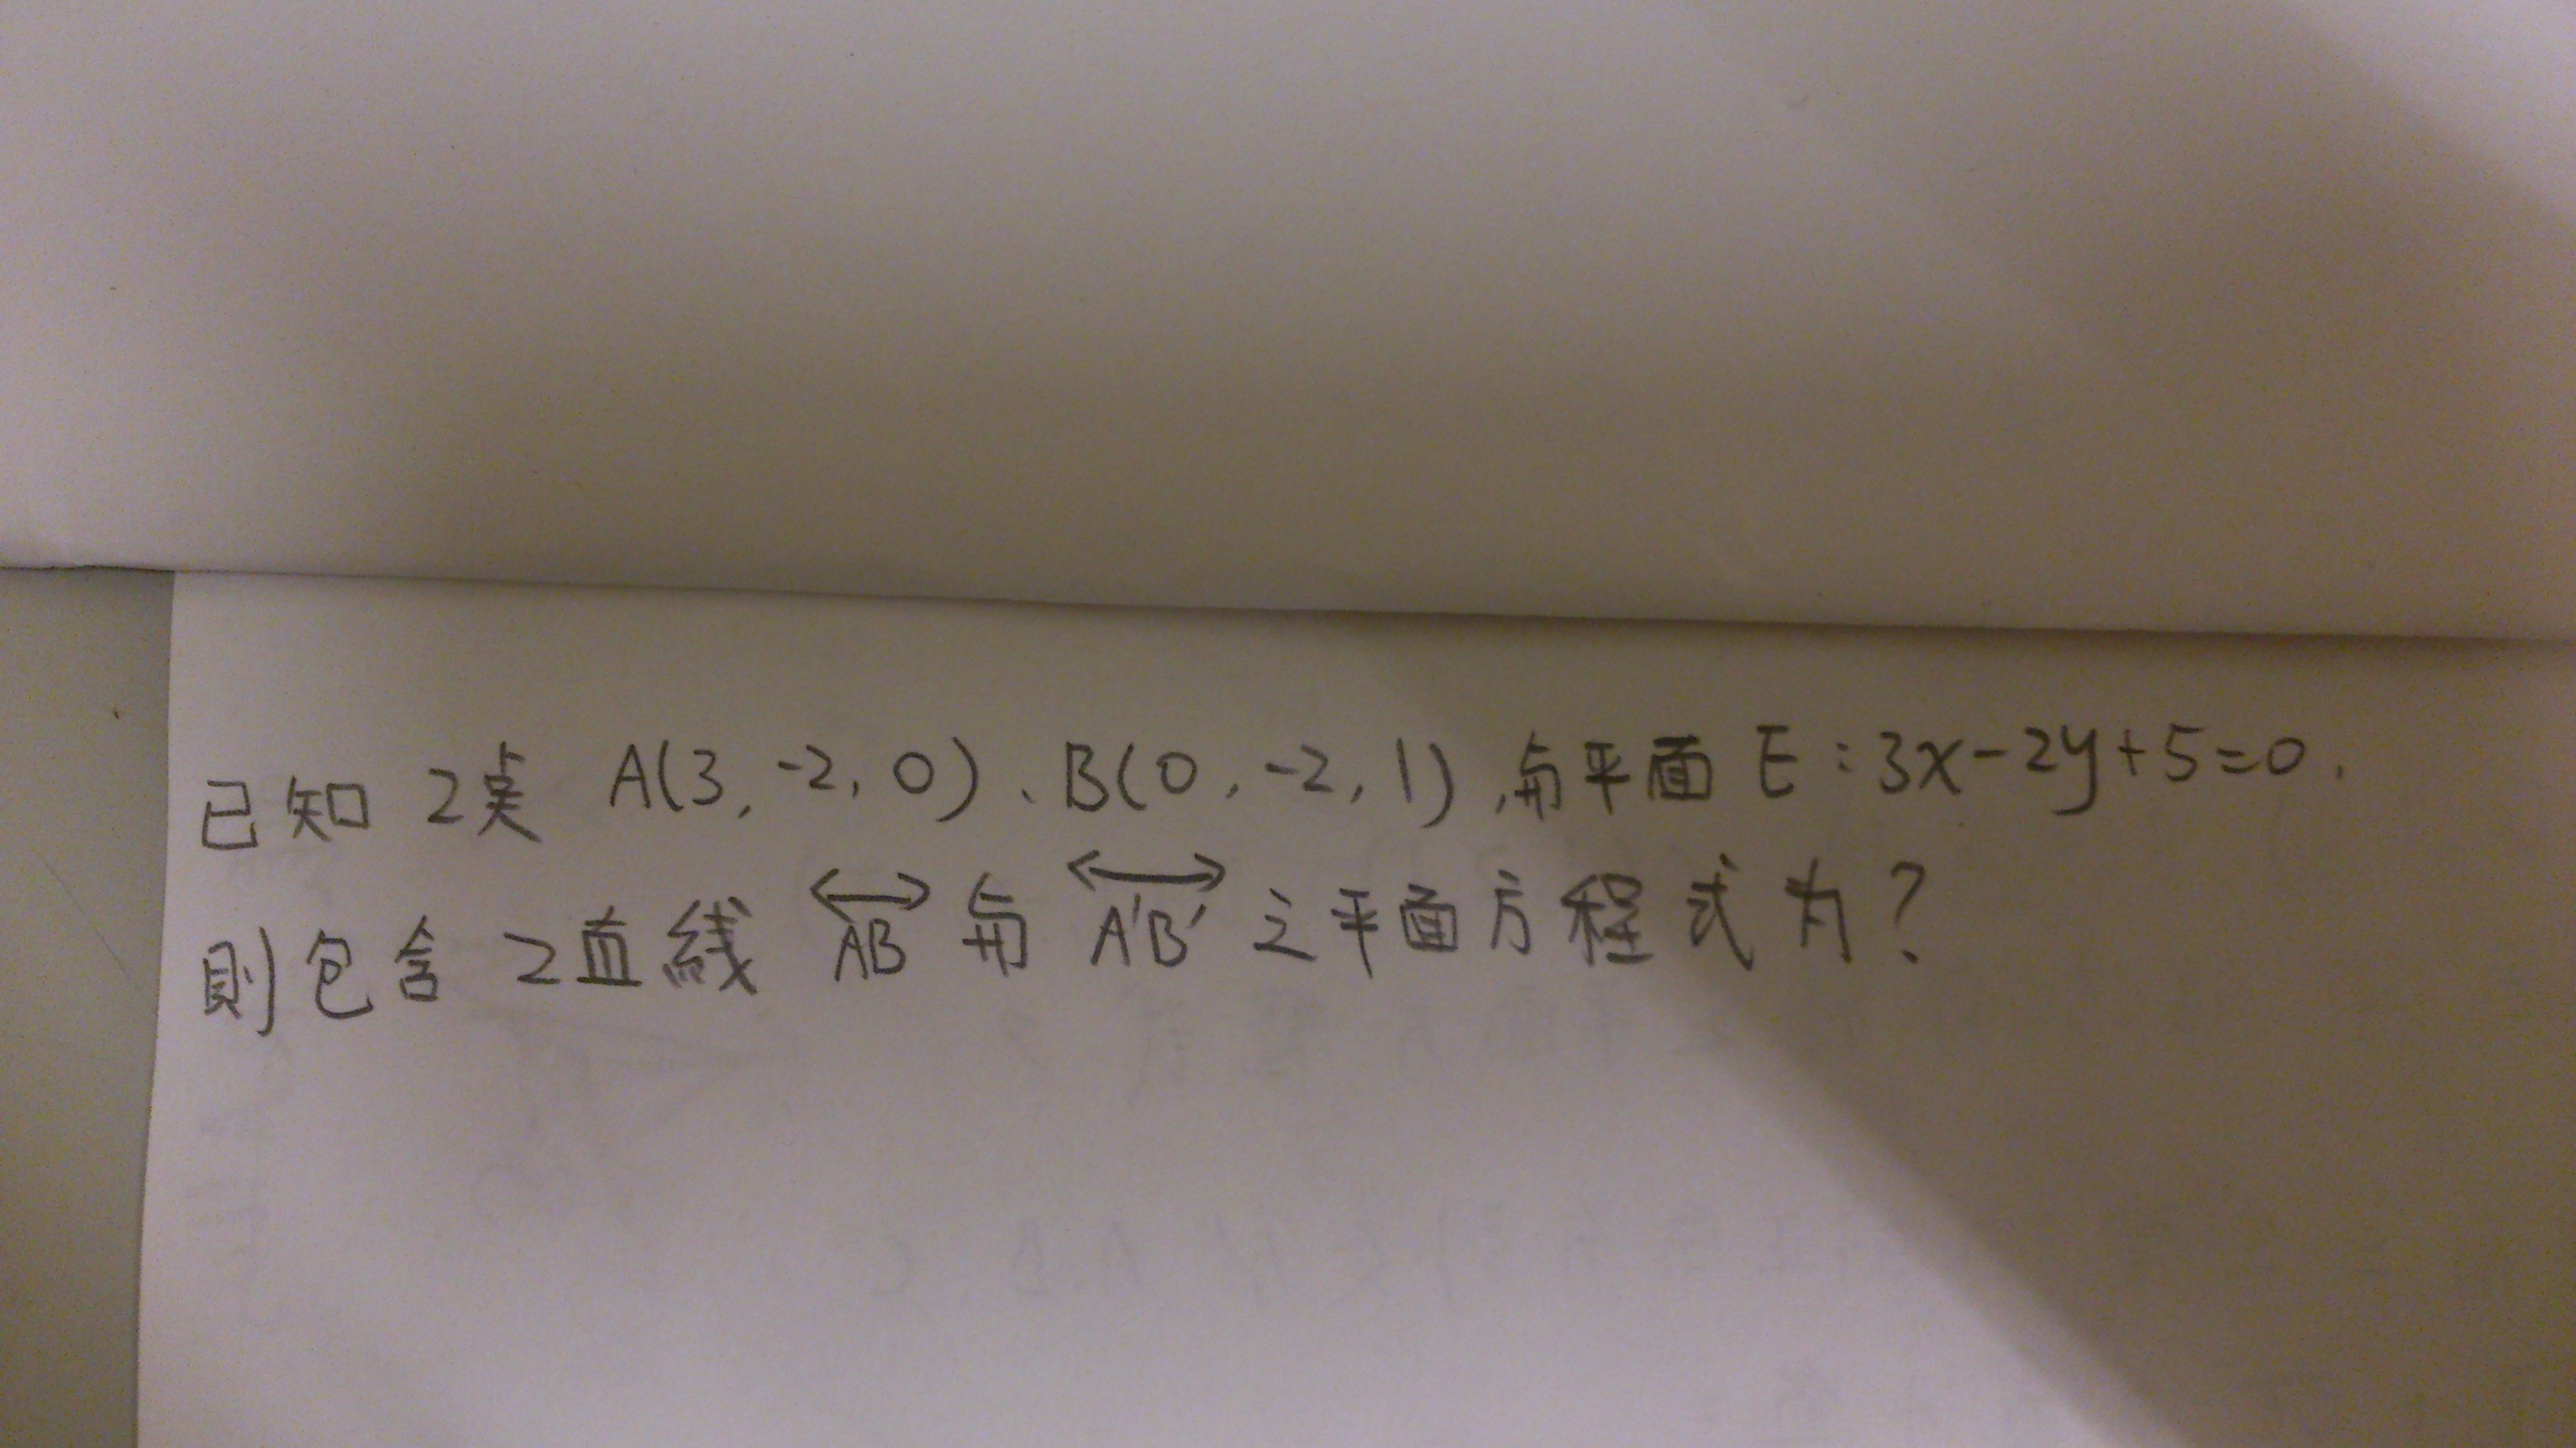 已知 2点 A(3, -2, 0)、B(0, -2, 1), 与平面 E:3x-2y+5=0.
則包含 2直綫 AB 与 A'B' 之平面方程式为?